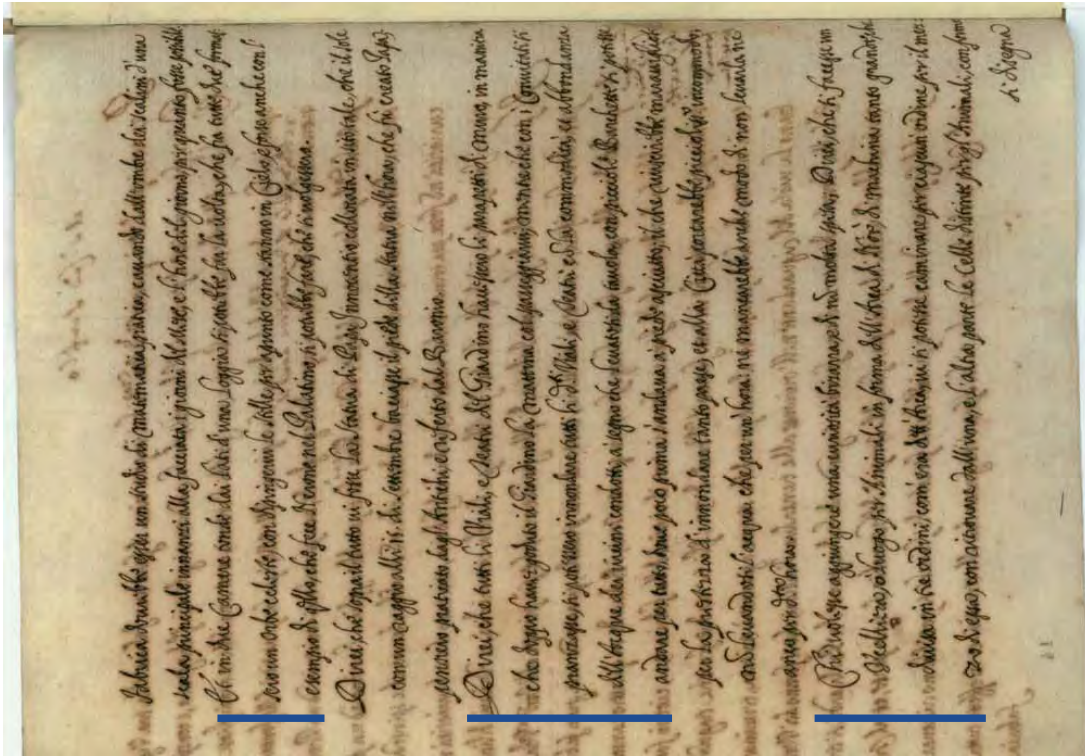 fabrica dovrebbe esser uno studio di matematica pratica, cavando dall'ombre dei scalini d'una
scala principale innanzi alla facciata i giorni del mese, e l'hore del giorno, per quanto fosse possibile
Et in due Camere tonde dai lati d'una loggia si potrebbe far la volta, che fra tutte due formas
sero un orbe celeste, con dipignervi le stelle per apunto come stanno in Cielo, forse anche con l'
esempio di quello, che fece Nerone nel Palatino, si potrebbe fare, che si volgessero.
Direi, che sopra il tutto vi fosse la statua di Papa Innocentio collocata in sito tale, che il sole
con un raggio alli di settembre baciasse il piede della statua nell'hora, che fù creato Papa,
pensiero praticato dagli Antichi, e riferito dal Baronio.
Direi, che tutti li Viali, e Teatri del Giardino havessero li parapetti di muro, in maniera
che doppo haver goduto il Giardino la mattina col passeggiarvi, mentre che con i Convitati si
pranzasse, si potessero inondare tutti li d.i Viali, e Teatri e della commodità, et abbondanza
dell'Acque da i vicini condotti, a segno che levatosi da tavola, con picciole Barchette si potesse
andare per tutto, dove poco prima s'andava a piedi asciutti, il che riuscirebbe maravigliosa
per la prestezza d'inondare tanto paese, et alla Città conarebbe picciolissimo incommodo,
mà levandosi l'acqua che per un'hora: ne mancarebbe anche modo di non levarla ne
anco per d.a hora.
Chi volesse aggiungere una curiosità bizzarra, e di non molta spesa, Direi, che si facesse un
Serbatoio, o luogo per Animali in forma dell'Arca di Noè, di machina tanto grande, che
divisa in tre ordini, com'era dett'Arca, vi si potesse caminare per ciascun ordine per il mez
zo di esso, con havere dall'una, e l'altra parte le Celle distinte per gl'Animali, conforme
si disegna